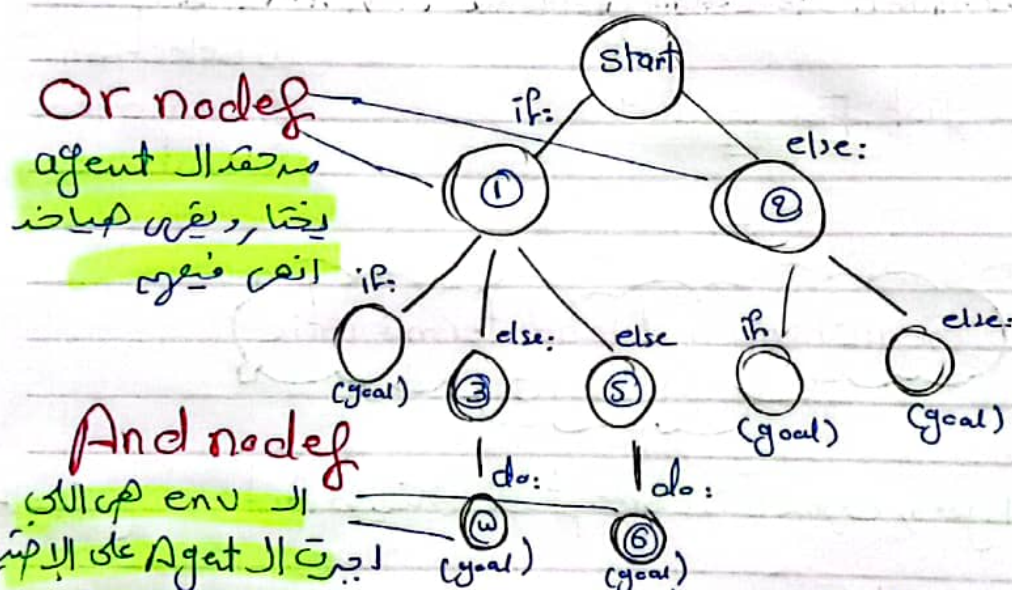 Start
if:
else:
Or nodes
من حقه ال agent
يختار ويقرر هياخد
انهى فيهم
①
②
if:
else:
else
if
else:
(goal)
③
⑤
(goal)
(goal)
And nodes
ال env هى اللى
اجبرت ال Agent على
do:
do:
⑥
(goal)
(goal)